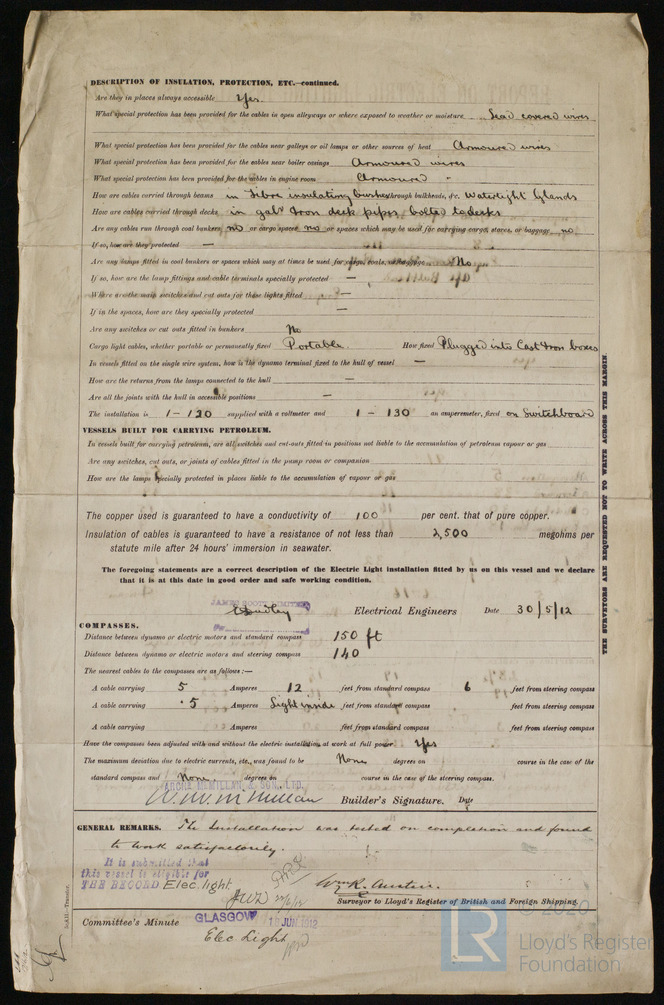 DESCRIPTION OF INSULATION, PROTECTION, ETC.—continued.
Are they in places always accessible Yes.
What special protection has been provided for the cables in open alleyways or where exposed to weather or moisture Lead covered wires
What special protection has been provided for the cables near galleys or oil lamps or other sources of heat Armoured wires
What special protection has been provided for the cables near boiler casings Armoured wires
What special protection has been provided for the cables in engine room Armoured "
How are cables carried through beams in Fibre insulating bushes through bulkheads, &c. Watertight Glands
How are cables carried through decks in galv Iron deck pipes, bolted to decks
Are any cables run through coal bunkers no or cargo spaces no or spaces which may be used for carrying cargo, stores, or baggage no
If so, how are they protected —
Are any lamps fitted in coal bunkers or spaces which may at times be used for cargo, coals, or baggage No
If so, how are the lamp fittings and cable terminals specially protected —
Where are the main switches and cut outs for these lights fitted —
If in the spaces, how are they specially protected —
Are any switches or cut outs fitted in bunkers No
Cargo light cables, whether portable or permanently fixed Portable. How fixed Plugged into Cast Iron boxes
In vessels fitted on the single wire system, how is the dynamo terminal fixed to the hull of vessel —
How are the returns from the lamps connected to the hull —
Are all the joints with the hull in accessible positions —
The installation is 1 - 120 supplied with a voltmeter and 1 - 130 an amperemeter, fixed on Switchboard
VESSELS BUILT FOR CARRYING PETROLEUM.
In vessels built for carrying petroleum, are all switches and cut-outs fitted in positions not liable to the accumulation of petroleum vapour or gas
Are any switches, cut outs, or joints of cables fitted in the pump room or companion
How are the lamps specially protected in places liable to the accumulation of vapour or gas
The copper used is guaranteed to have a conductivity of 100 per cent. that of pure copper.
Insulation of cables is guaranteed to have a resistance of not less than 2,500 megohms per
statute mile after 24 hours' immersion in seawater.
The foregoing statements are a correct description of the Electric Light installation fitted by us on this vessel and we declare
that it is at this date in good order and safe working condition.
JAMES SCOTT LIMITED
Electrical Engineers Date 30/5/12
COMPASSES.
Distance between dynamo or electric motors and standard compass 150 ft
Distance between dynamo or electric motors and steering compass 140
The nearest cables to the compasses are as follows:—
A cable carrying 5 Amperes 12 feet from standard compass 6 feet from steering compass
A cable carrying .5 Amperes Light inside feet from standard compass feet from steering compass
A cable carrying Amperes feet from standard compass feet from steering compass
Have the compasses been adjusted with and without the electric installation at work at full power Yes
The maximum deviation due to electric currents, etc., was found to be None degrees on course in the case of the
standard compass and None. degrees on course in the case of the steering compass.
ARCHD McMILLAN & SON, LTD.
W. McMillan Builder's Signature. Date
GENERAL REMARKS. The Installation was tested on completion and found
to work satisfactorily.
It is submitted that
this vessel is eligible for
THE RECORD Elec. light.
JWD
Wm R. Austin.
Surveyor to Lloyd's Register of British and Foreign Shipping.
Committee's Minute GLASGOW 18 JUN 1912
Elec Light
THE SURVEYORS ARE REQUESTED NOT TO WRITE ACROSS THIS MARGIN.
© 2020
LR Lloyd's Register
Foundation